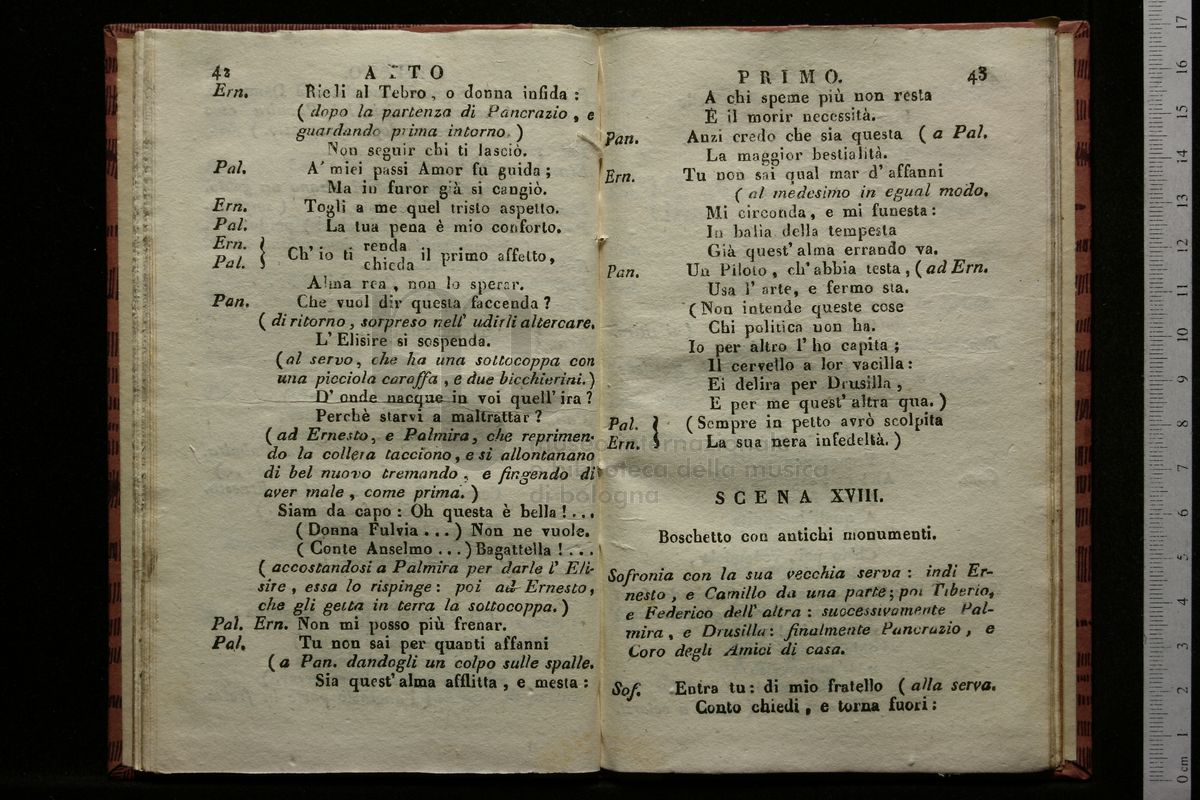 42 ATTO
Ern. Riedi al Tebro, o donna infida :
( dopo la partenza di Pancrazio, e
guardando prima intorno. )
Non seguir chi ti lasciò.
Pal. A' miei passi Amor fu guida ;
Ma in furor già si cangiò.
Ern. Togli a me quel tristo aspetto.
Pal. La tua pena è mio conforto.
Ern. } Ch' io ti renda il primo affetto,
Pal. } chieda
Alma rea, non lo sperar.
Pan. Che vuol dir questa faccenda ?
( di ritorno, sorpreso nell' udirli altercare.
L' Elisire si sospenda.
( al servo, che ha una sottocoppa con
una picciola caraffa, e due bicchierini. )
D' onde nacque in voi quell' ira ?
Perchè starvi a maltrattar ?
( ad Ernesto, e Palmira, che reprimen-
do la collera tacciono, e si allontanano
di bel nuovo tremando, e fingendo di
aver male, come prima. )
Siam da capo : Oh questa è bella ! ...
( Donna Fulvia ... ) Non ne vuole.
( Conte Anselmo ... ) Bagattella ! ...
( accostandosi a Palmira per darle l' Eli-
sire, essa lo rispinge : poi ad Ernesto,
che gli getta in terra la sottocoppa. )
Pal. Ern. Non mi posso più frenar.
Pal. Tu non sai per quanti affanni
( a Pan. dandogli un colpo sulle spalle.
Sia quest' alma afflitta, e mesta :
PRIMO. 43
A chi speme più non resta
È il morir necessità.
Pan. Anzi credo che sia questa ( a Pal.
La maggior bestialità.
Ern. Tu non sai qual mar d' affanni
( al medesimo in egual modo.
Mi circonda, e mi funesta :
In balia della tempesta
Già quest' alma errando va.
Pan. Un Piloto, ch' abbia testa, ( ad Ern.
Usa l' arte, e fermo sta.
( Non intende queste cose
Chi politica non ha.
Io per altro l' ho capita ;
Il cervello a lor vacilla :
Ei delira per Drusilla,
E per me quest' altra qua. )
Pal. } ( Sempre in petto avrò scolpita
Ern. } La sua nera infedeltà. )
SCENA XVIII.
Boschetto con antichi monumenti.
Sofronia con la sua vecchia serva : indi Er-
nesto, e Camillo da una parte ; poi Tiberio,
e Federico dell' altra : successivamente Pal-
mira, e Drusilla : finalmente Pancrazio, e
Coro degli Amici di casa.
Sof. Entra tu : di mio fratello ( alla serva.
Conto chiedi, e torna fuori :
museo internazionale
e biblioteca della musica
di bologna
0 cm 1 2 3 4 5 6 7 8 9 10 11 12 13 14 15 16 17